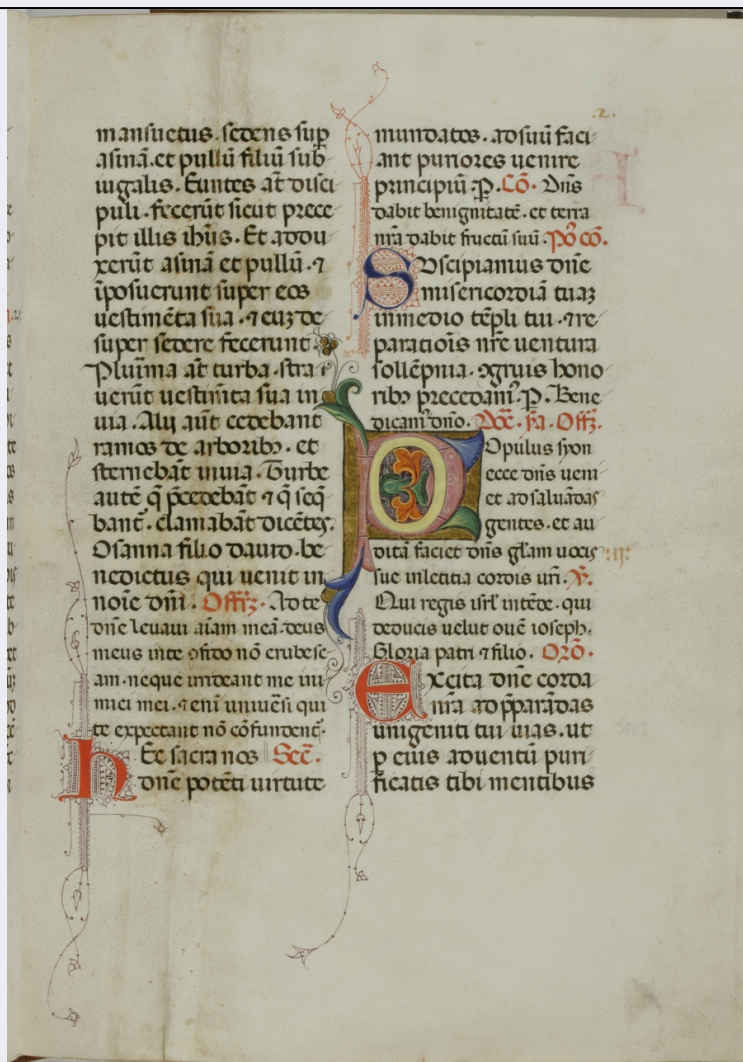 .2.
mansuetus. sedens sup̄
asinā. et pullū filiū sub
iugalis. Euntes at̄ disci
puli. fecerūt sicut prece
pit illis ih̄us. Et addu
xerūt asinā et pullū. ⁊
īposuerunt super eos
uestimēta sua. ⁊ euꝫ de
super sedere fecerunt.
Plurima at̄ turba. stra
uerūt uestim̄ta sua in
uia. Alij aūt cedebant
ramos de arboribꝫ. et
sternebāt inuia. Turbe
autē q̄ p̄cedebāt ⁊ q̄ seq̄
bant̄. clamabāt dicētes.
Osanna filio dauid. be
nedictus qui uenit in
noīe dn̄i. Offꝫ. Ad te
dn̄e leuaui aīam meā. deus
meus inte ꝯfido nō erubesc
am. neque irrideant me ini
mici mei. ⁊ enī uniuēsi qui
te expectant nō cōfundent̄.
hEc sacra nos Sec̄.
dn̄e potēti uirtute
mundatos. ad suū faci
ant puriores uenire
principiū. P. Cō. Dn̄s
dabit benignitatē. et terra
nr̄a dabit fructū suū. Po᷒ cō.
SUscipiamus dn̄e
misericordiā tuaꝫ
in medio tēpli tui. ⁊ re
parationīs nr̄e uentura
sollēpnia. ꝯgruis hono
ribꝫ precedamꝰ. P. Bene
dicamꝰ dn̄o. Dōc. ẜa. Offꝫ.
POpulus syon
ecce dn̄s ueni
et ad saluādas
gentes. et au
ditā faciet dn̄s gl̄am uocis
sue in letitia cordis ur̄i. ℣.
Qui regis isrl̄ intēde. qui
deducis uelut ouē ioseph.
Gloria patri ⁊ filio. Orō.
eXcita dn̄e corda
nr̄a ad p̄parādas
unigeniti tui uias. ut
ꝑ eius aduentū puri
ficatis tibi mentibus